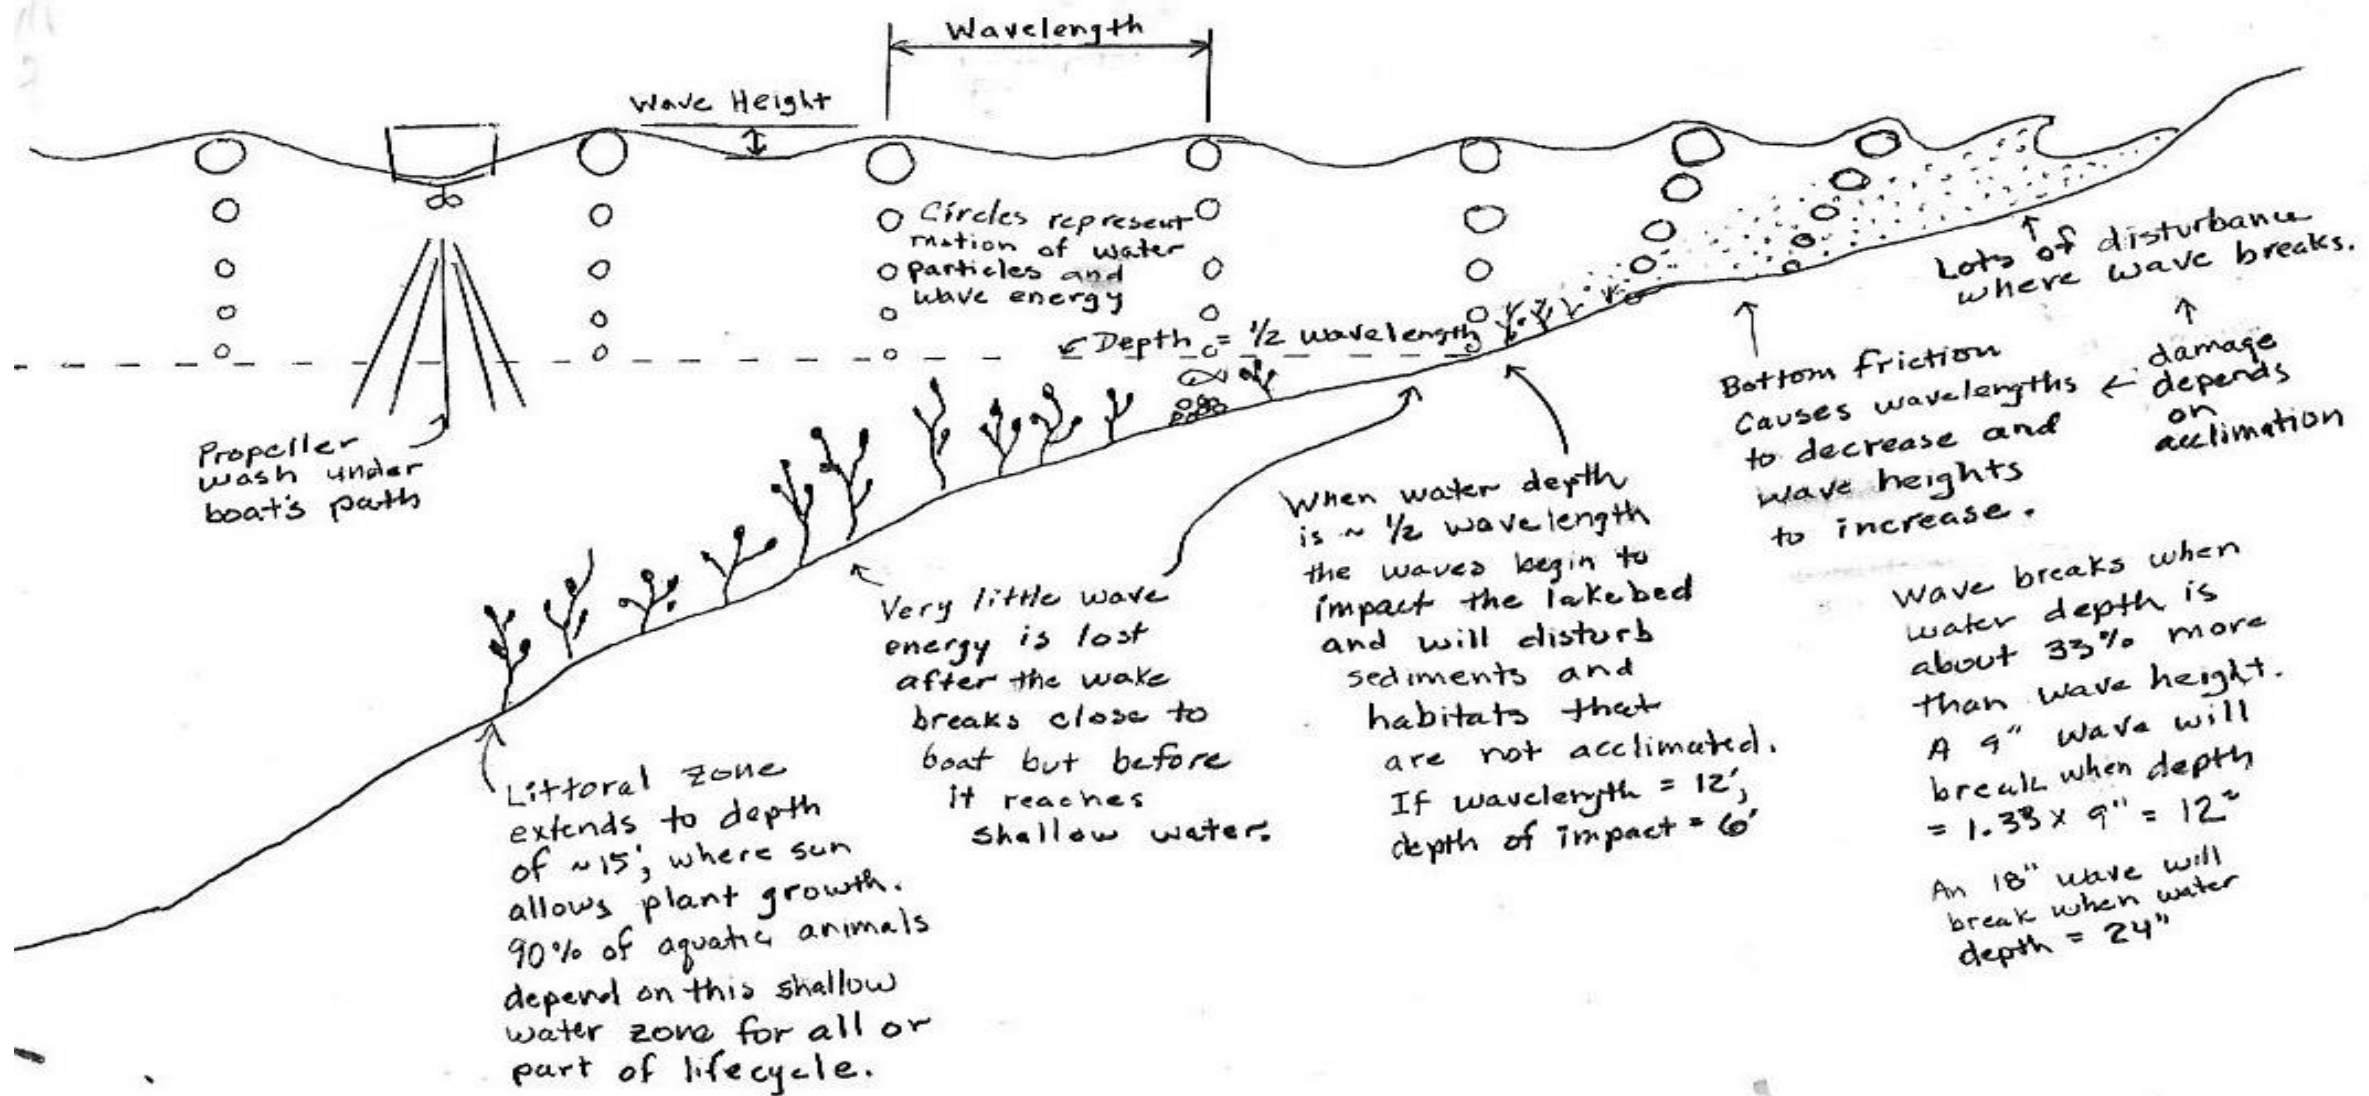 Wavelength
Wave Height
Circles represent
motion of water
particles and
wave energy
Depth = 1/2 wavelength
Lots of disturbance
where wave breaks.
Propeller
wash under
boat's path
Bottom friction
causes wavelengths
to decrease and
wave heights
to increase.
damage
depends
on
acclimation
Very little wave
energy is lost
after the wake
breaks close to
boat but before
it reaches
shallow water.
When water depth
is ~ 1/2 wavelength
the waves begin to
impact the lakebed
and will disturb
sediments and
habitats that
are not acclimated.
If wavelength = 12',
depth of impact = 6'
Wave breaks when
water depth is
about 33% more
than wave height.
A 9" wave will
break when depth
= 1.33 x 9" = 12"
An 18" wave will
break when water
depth = 24"
Littoral zone
extends to depth
of ~15', where sun
allows plant growth.
90% of aquatic animals
depend on this shallow
water zone for all or
part of lifecycle.